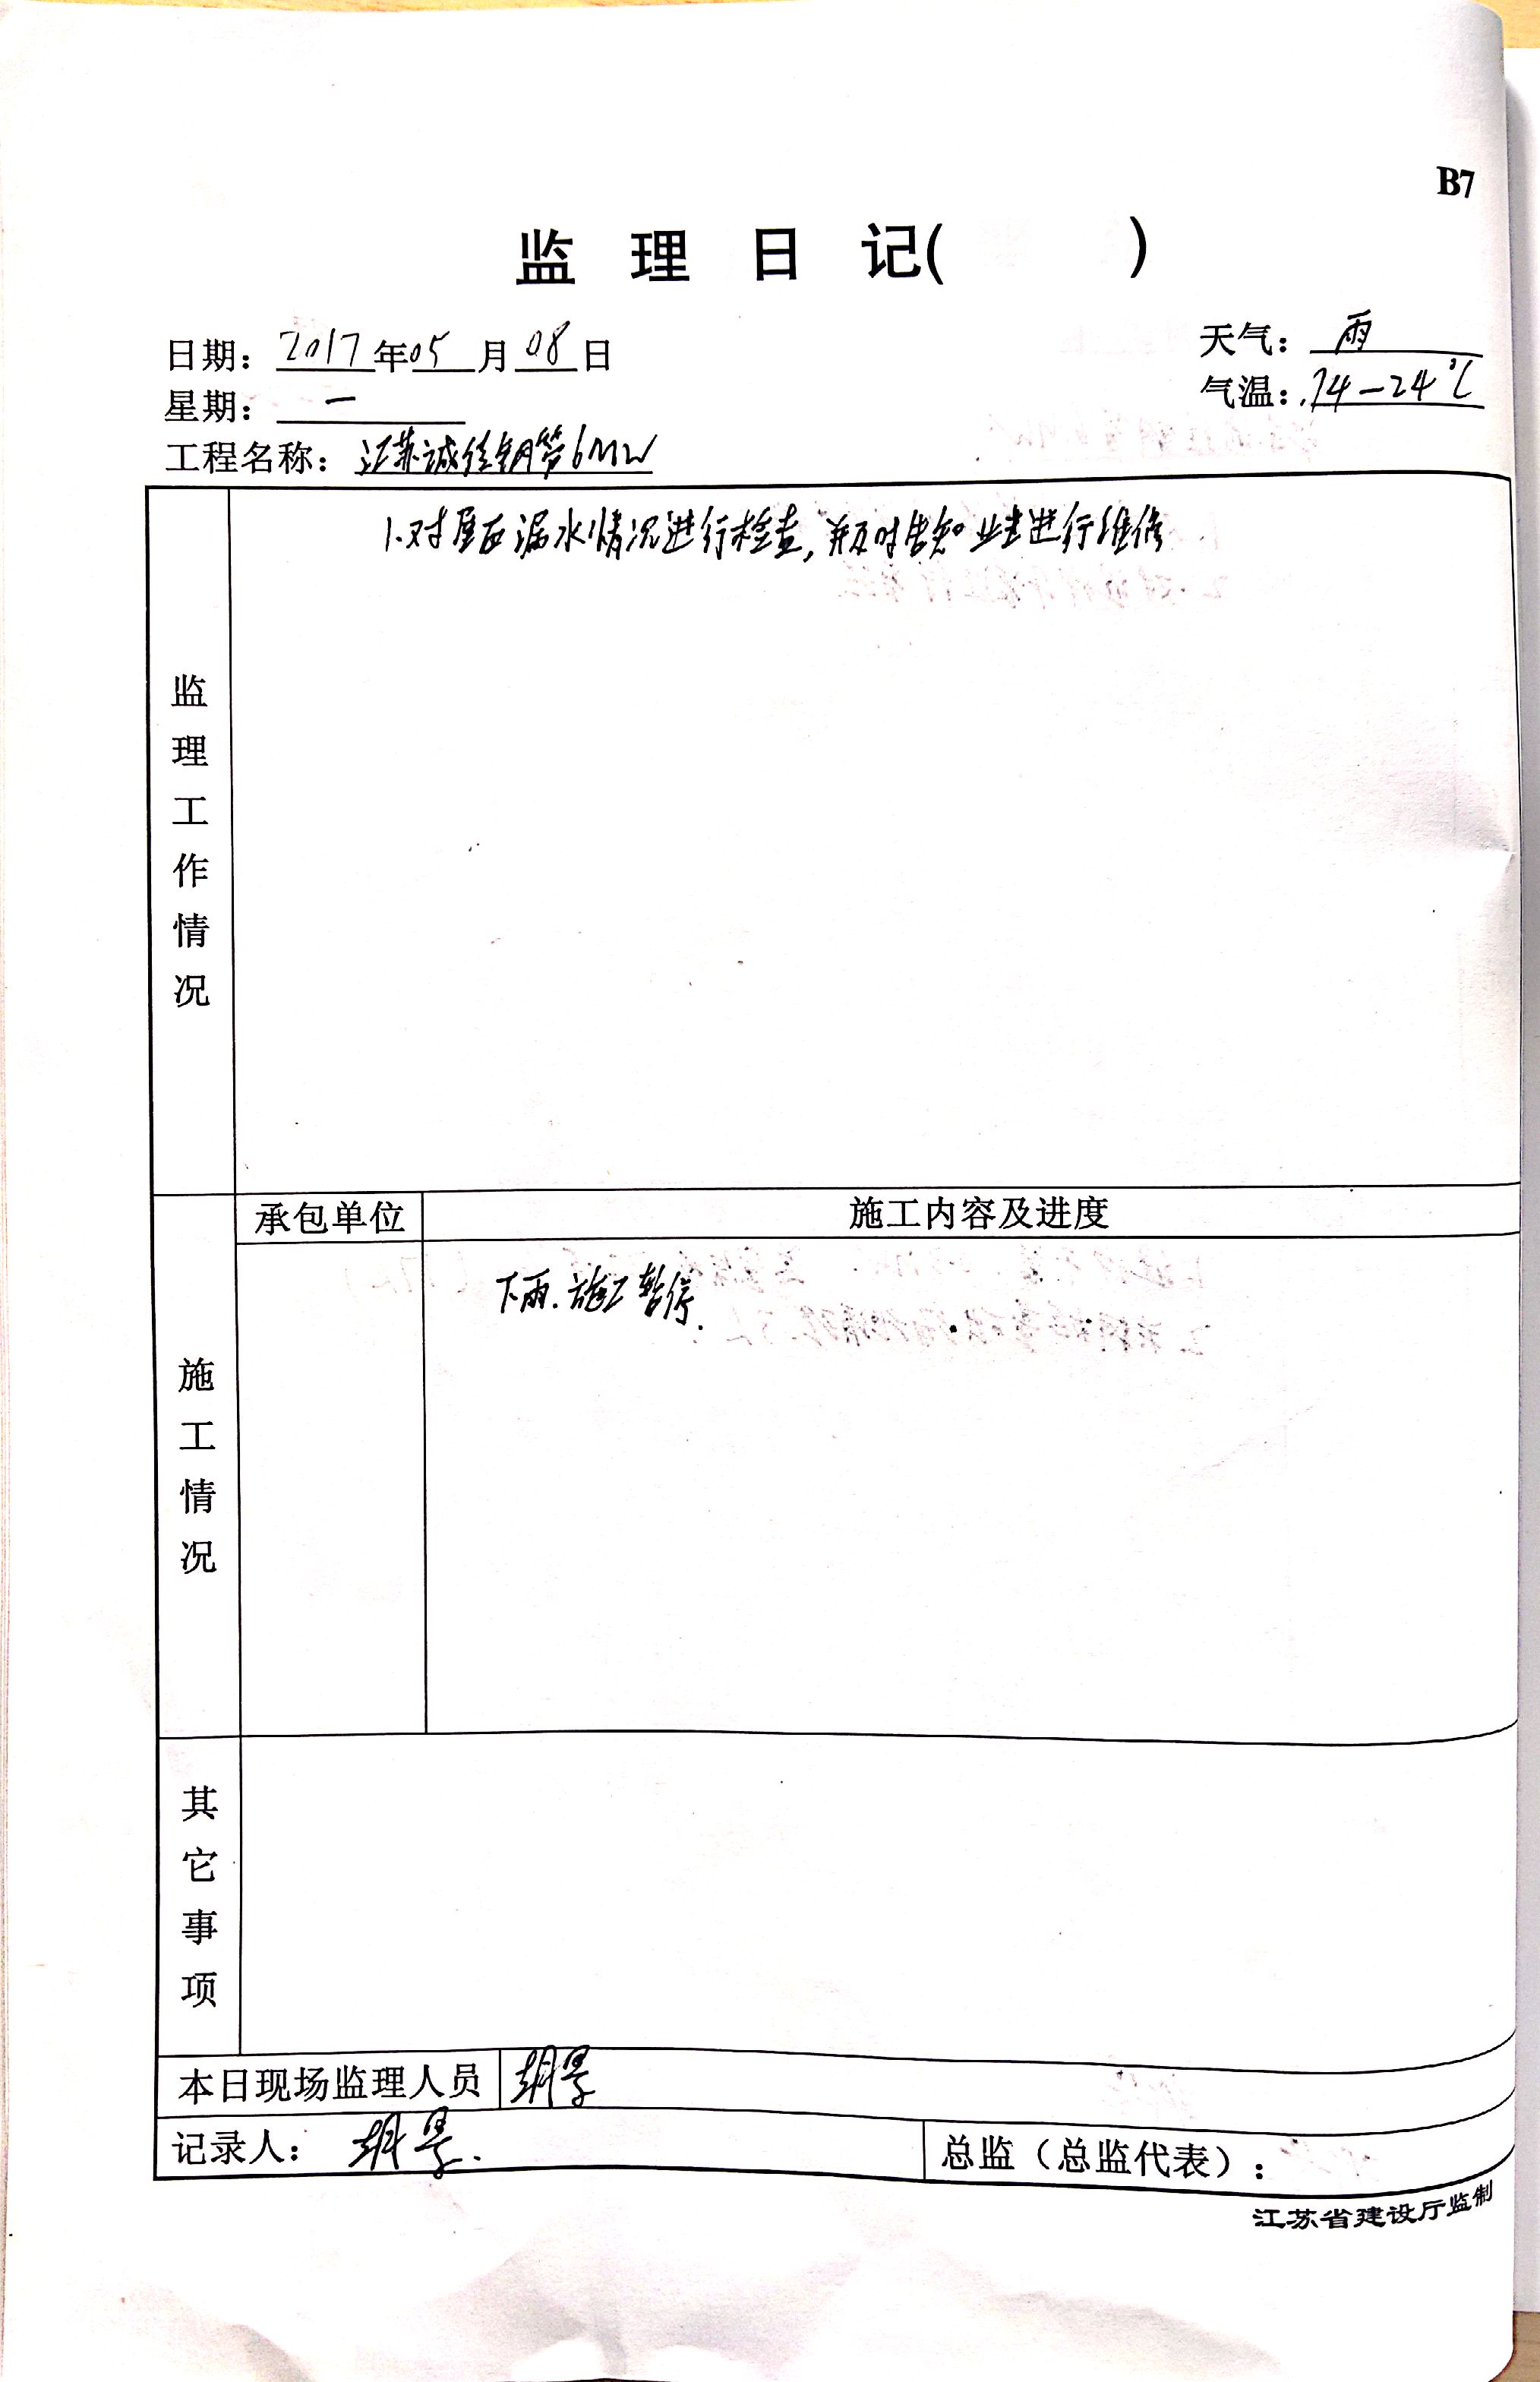 B7
监理日记( )
日期：2017年05月08日
天气：雨
星期：一
气温：14-24℃
工程名称：江苏诚佳钢管6MW
监理工作情况
1.对屋面漏水情况进行检查，并及时告知业主进行维修
施工情况
承包单位
施工内容及进度
下雨.施工暂停.
其它事项
本日现场监理人员
记录人：
总监（总监代表）：
江苏省建设厅监制